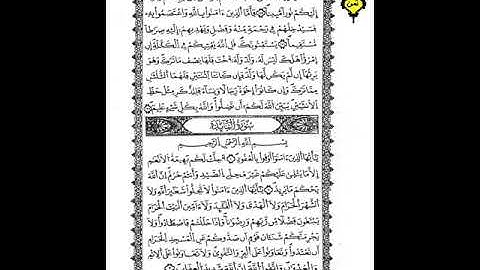 إِلَيْكُمْ نُورًا مُّبِينًا فَأَمَّا الَّذِينَ ءَامَنُوا بِاللَّهِ وَاعْتَصَمُوا بِهِ
فَسَيُدْخِلُهُمْ فِي رَحْمَةٍ مِّنْهُ وَفَضْلٍ وَيَهْدِيهِمْ إِلَيْهِ صِرَاطًا
مُّسْتَقِيمًا يَسْتَفْتُونَكَ قُلِ اللَّهُ يُفْتِيكُمْ فِي الْكَلَالَةِ إِنِ
امْرُؤٌا هَلَكَ لَيْسَ لَهُ وَلَدٌ وَلَهُ أُخْتٌ فَلَهَا نِصْفُ مَا تَرَكَ وَهُوَ
يَرِثُهَا إِن لَّمْ يَكُن لَّهَا وَلَدٌ فَإِن كَانَتَا اثْنَتَيْنِ فَلَهُمَا الثُّلُثَانِ
مِمَّا تَرَكَ وَإِن كَانُوا إِخْوَةً رِّجَالًا وَنِسَاءً فَلِلذَّكَرِ مِثْلُ حَظِّ
الْأُنثَيَيْنِ يُبَيِّنُ اللَّهُ لَكُمْ أَن تَضِلُّوا وَاللَّهُ بِكُلِّ شَيْءٍ عَلِيمٌ
سُورَةُ الْمَائِدَةِ
بِسْمِ اللَّهِ الرَّحْمَٰنِ الرَّحِيمِ
يَٰأَيُّهَا الَّذِينَ ءَامَنُوا أَوْفُوا بِالْعُقُودِ أُحِلَّتْ لَكُم بَهِيمَةُ الْأَنْعَٰمِ
إِلَّا مَا يُتْلَىٰ عَلَيْكُمْ غَيْرَ مُحِلِّي الصَّيْدِ وَأَنتُمْ حُرُمٌ إِنَّ اللَّهَ
يَحْكُمُ مَا يُرِيدُ يَٰأَيُّهَا الَّذِينَ ءَامَنُوا لَا تُحِلُّوا شَعَٰئِرَ اللَّهِ وَلَا
الشَّهْرَ الْحَرَامَ وَلَا الْهَدْيَ وَلَا الْقَلَٰئِدَ وَلَا ءَامِّينَ الْبَيْتَ الْحَرَامَ
يَبْتَغُونَ فَضْلًا مِّن رَّبِّهِمْ وَرِضْوَٰنًا وَإِذَا حَلَلْتُمْ فَاصْطَادُوا وَلَا
يَجْرِمَنَّكُمْ شَنَـَٔانُ قَوْمٍ أَن صَدُّوكُمْ عَنِ الْمَسْجِدِ الْحَرَامِ
أَن تَعْتَدُوا وَتَعَاوَنُوا عَلَى الْبِرِّ وَالتَّقْوَىٰ وَلَا تَعَاوَنُوا عَلَى الْإِثْمِ
وَالْعُدْوَٰنِ وَاتَّقُوا اللَّهَ إِنَّ اللَّهَ شَدِيدُ الْعِقَابِ